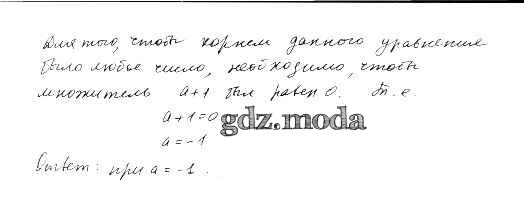 Для того, чтобы корнем данного уравнения
было любое число, необходимо, чтобы
множитель a+1 был равен 0. Т.е.
a+1=0
gdz.moda
a=-1
Ответ: при a=-1.